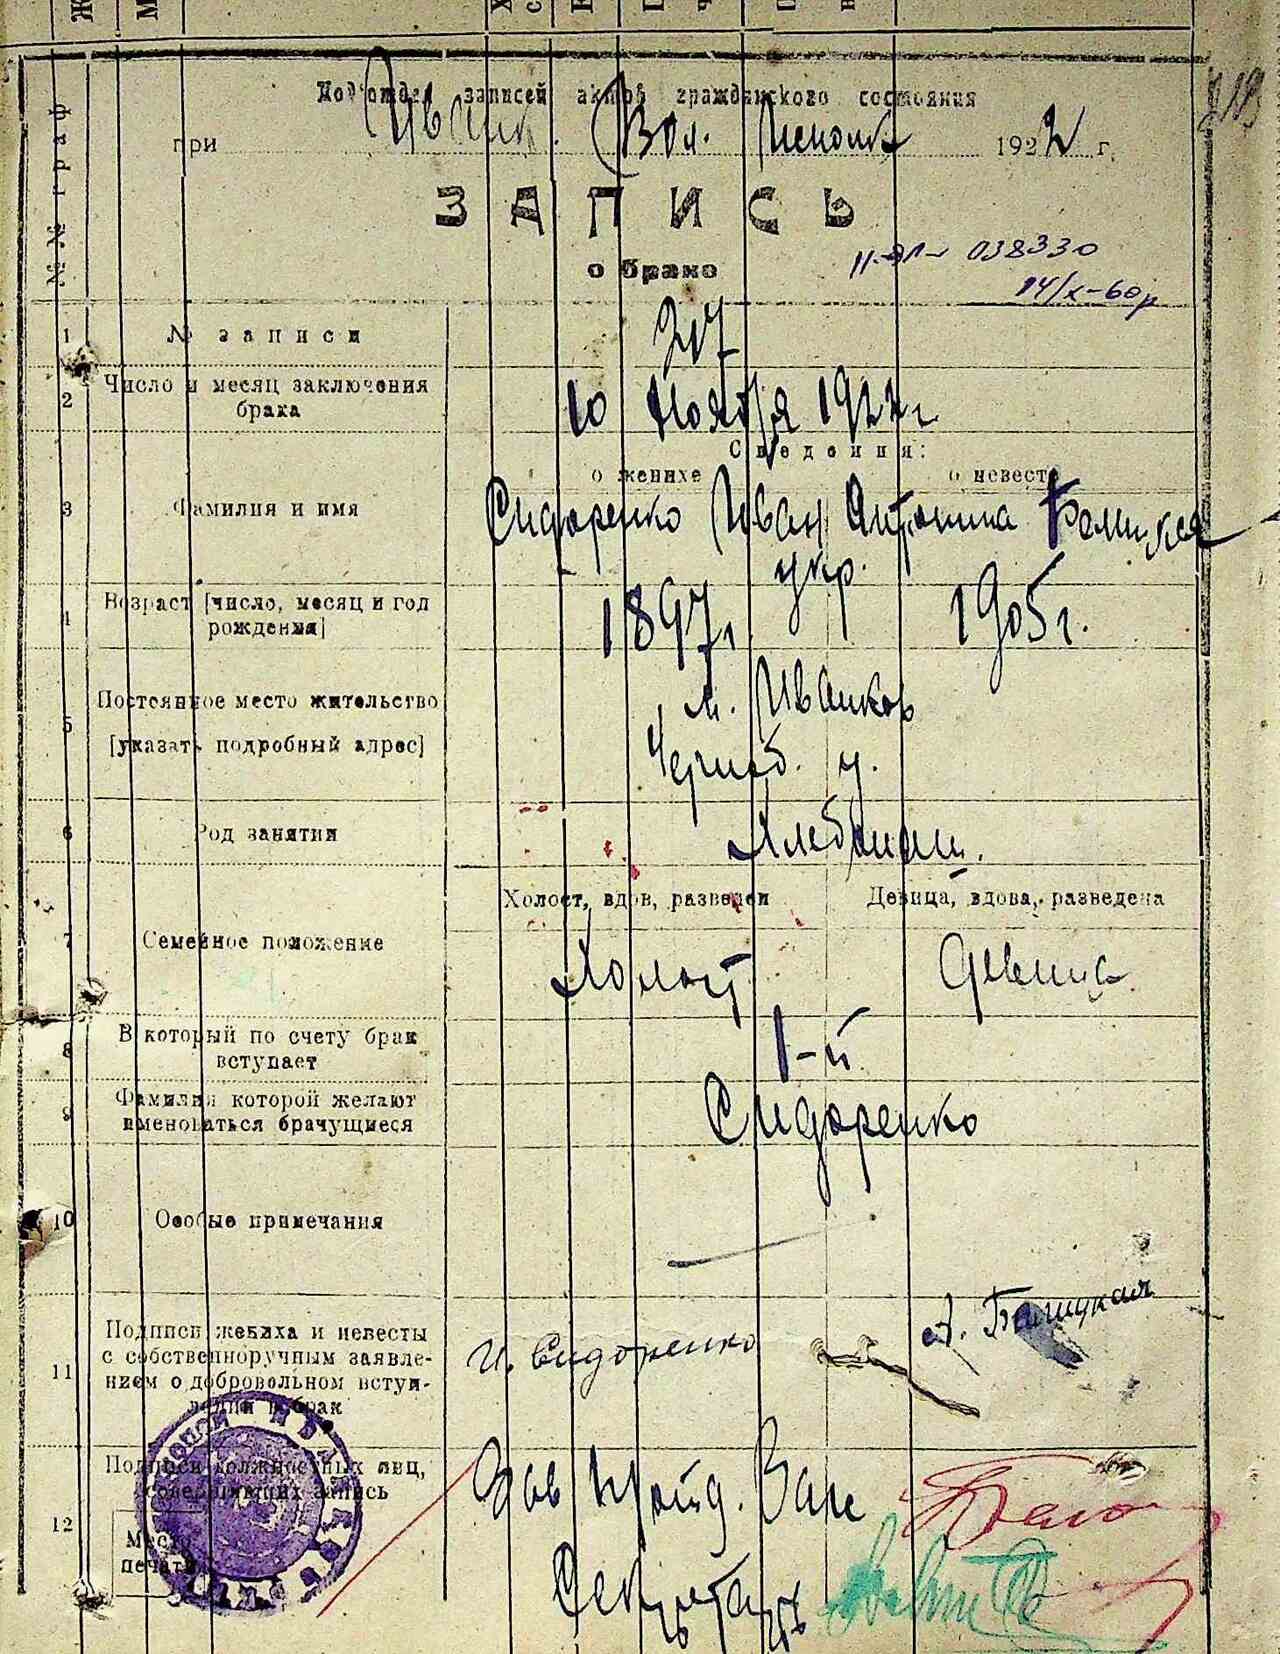 №№ граф
Подотдел записей актов гражданского состояния
при Иванк. Вол. Исполк 1922 г.
ЗАПИСЬ
о браке
038330
14/X-60р
1 № записи 207
2 Число и месяц заключения
брака
10 Ноября 1922 г.
Сведения:
о женихе о невесте
3 Фамилия и имя Сидоренко Иван Антонина
укр.
4 Возраст [число, месяц и год
рождения]
1897 г. 1905 г.
5 Постоянное место жительство
[указать подробный адрес]
м. Иванков
Черноб. у.
6 Род занятии Хлебпаш.
Холост, вдов, разведен Девица, вдова, разведена
7 Семейное положение Холост Девица
8 В который по счету брак
вступает
1-й
9 Фамилия которой желают
именоваться брачущиеся
Сидоренко
10 Особые примечания
11 Подписи жениха и невесты
с собственноручным заявле-
нием о добровольном вступ-
лении в брак
И. Сидоренко А.
12 Подписи должностных лиц,
совершивших запись
Место
печати
Зав Подотд. Загс
Секретарь